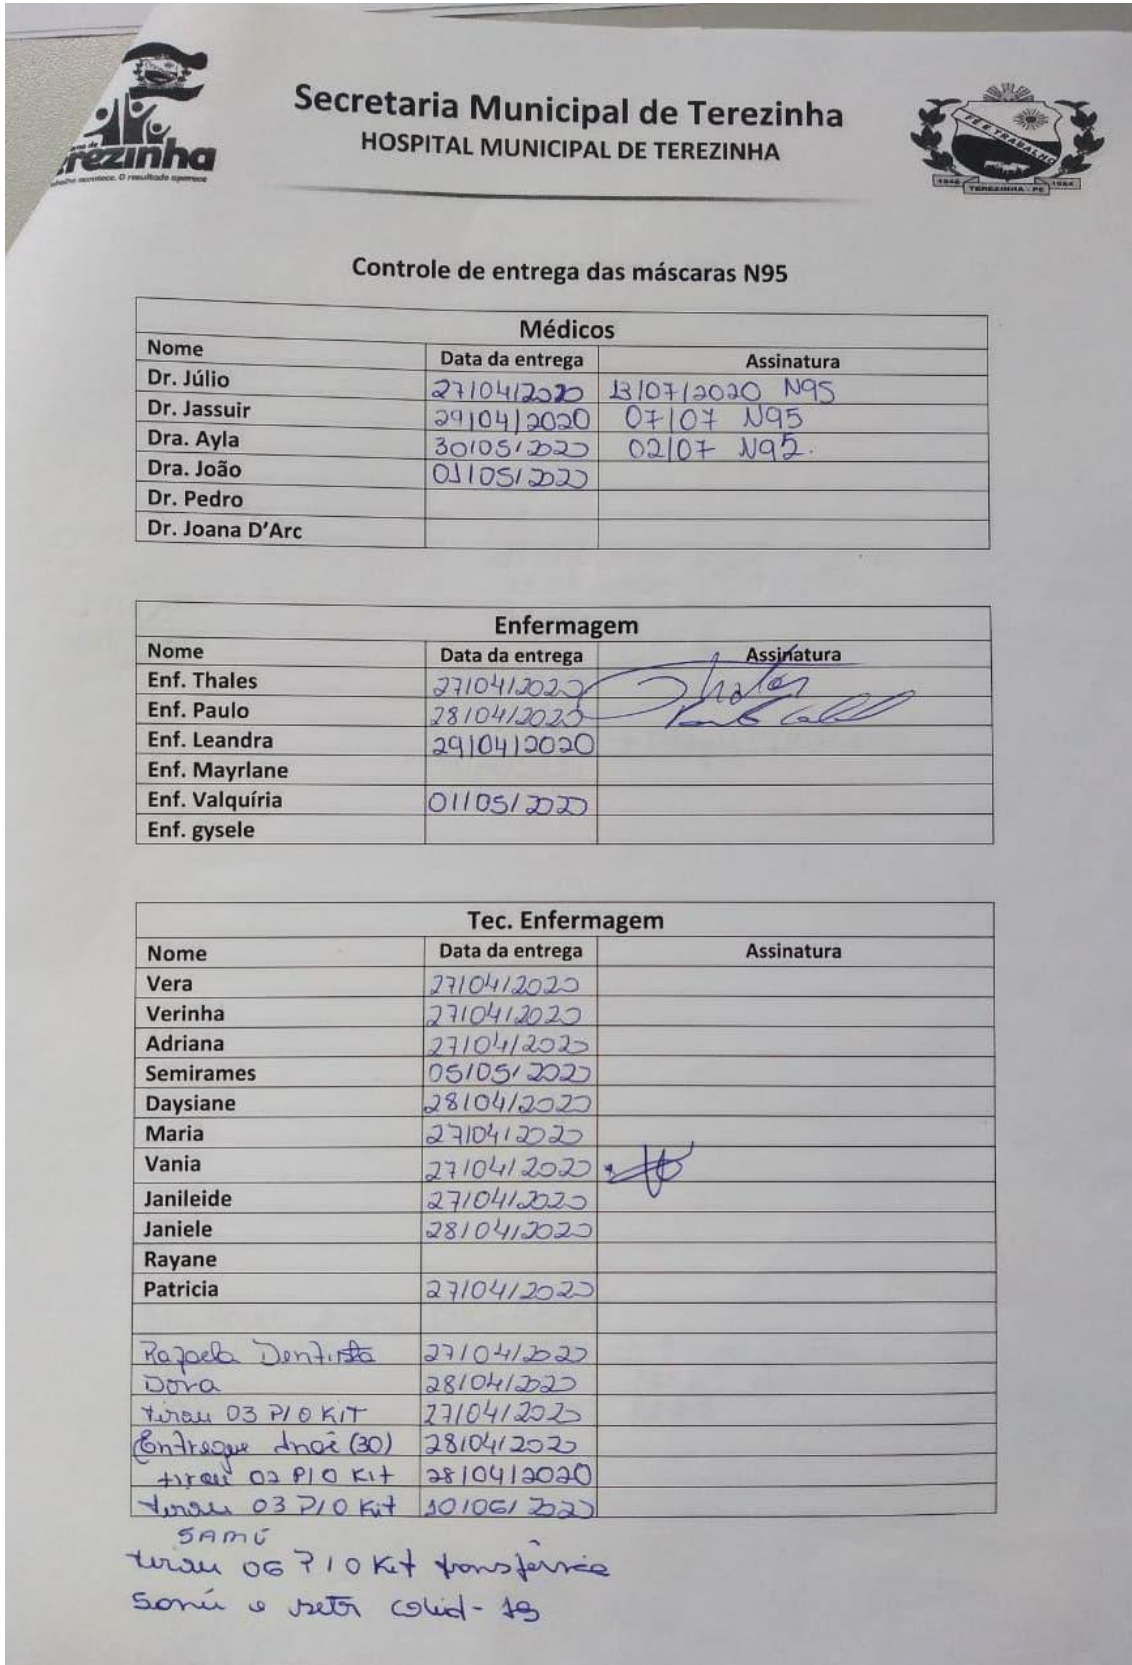 rezinha
Secretaria Municipal de Terezinha
HOSPITAL MUNICIPAL DE TEREZINHA
FÉ E TRABALHO
TEREZINHA - PE
Controle de entrega das máscaras N95
Médicos
Nome Data da entrega Assinatura
Dr. Júlio 27/04/2020 13/07/2020 N95
Dr. Jassuir 29/04/2020 07/07 N95
Dra. Ayla 30/05/2020 02/07 N95.
Dra. João 01/05/2020
Dr. Pedro
Dr. Joana D'Arc
Enfermagem
Nome Data da entrega Assinatura
Enf. Thales 27/04/2020 Thales
Enf. Paulo 28/04/2020
Enf. Leandra 29/04/2020
Enf. Mayrlane
Enf. Valquíria 01/05/2020
Enf. gysele
Tec. Enfermagem
Nome Data da entrega Assinatura
Vera 27/04/2020
Verinha 27/04/2020
Adriana 27/04/2020
Semirames 05/05/2020
Daysiane 28/04/2020
Maria 27/04/2020
Vania 27/04/2020
Janileide 27/04/2020
Janiele 28/04/2020
Rayane
Patricia 27/04/2020
Rafaela Dentista 27/04/2020
Dora 28/04/2020
tirau 03 P/ O KIT 27/04/2020
Entregue (30) 28/04/2020
tirau 02 P/ O Kit 28/04/2020
tirau 03 P/ O Kit 10/06/2020
SAMÚ
tirau 06 P/ O Kit
covid-19